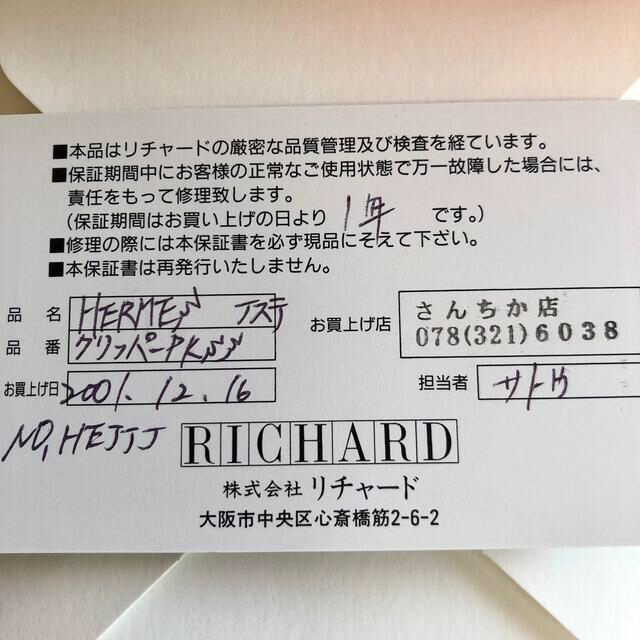 ■本品はリチャードの厳密な品質管理及び検査を経ています。
■保証期間中にお客様の正常なご使用状態で万一故障した場合には、
責任をもって修理致します。
(保証期間はお買い上げの日より 1年 です。)
■修理の際には本保証書を必ず現品にそえて下さい。
■本保証書は再発行いたしません。
品名 HERMES
品番 クリッパー
お買上げ日 2001. 12. 16
お買上げ店 さんちか店
078(321)6038
担当者 サトウ
RICHARD
株式会社 リチャード
大阪市中央区心斎橋筋2-6-2